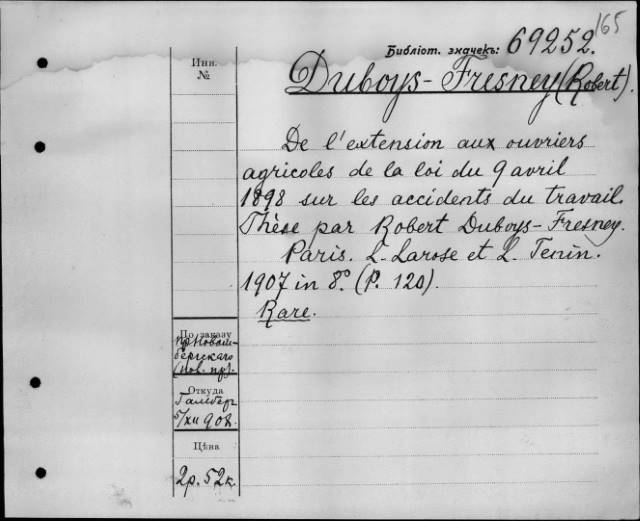 165
Библіот. значекъ: 69252.
Инв.
№
Duboys-Fresney (Robert).
De l'extension aux ouvriers
agricoles de la loi du 9 avril
1898 sur les accidents du travail.
Thèse par Robert Duboys-Fresney.
Paris. L. Larose et L. Tenin.
1907 in 8.° (P. 120).
Rare.
По заказу
пр. Новом-
бергскаго
(нов. пр).
Откуда
5/XII 908.
Цѣна
2р. 52к.